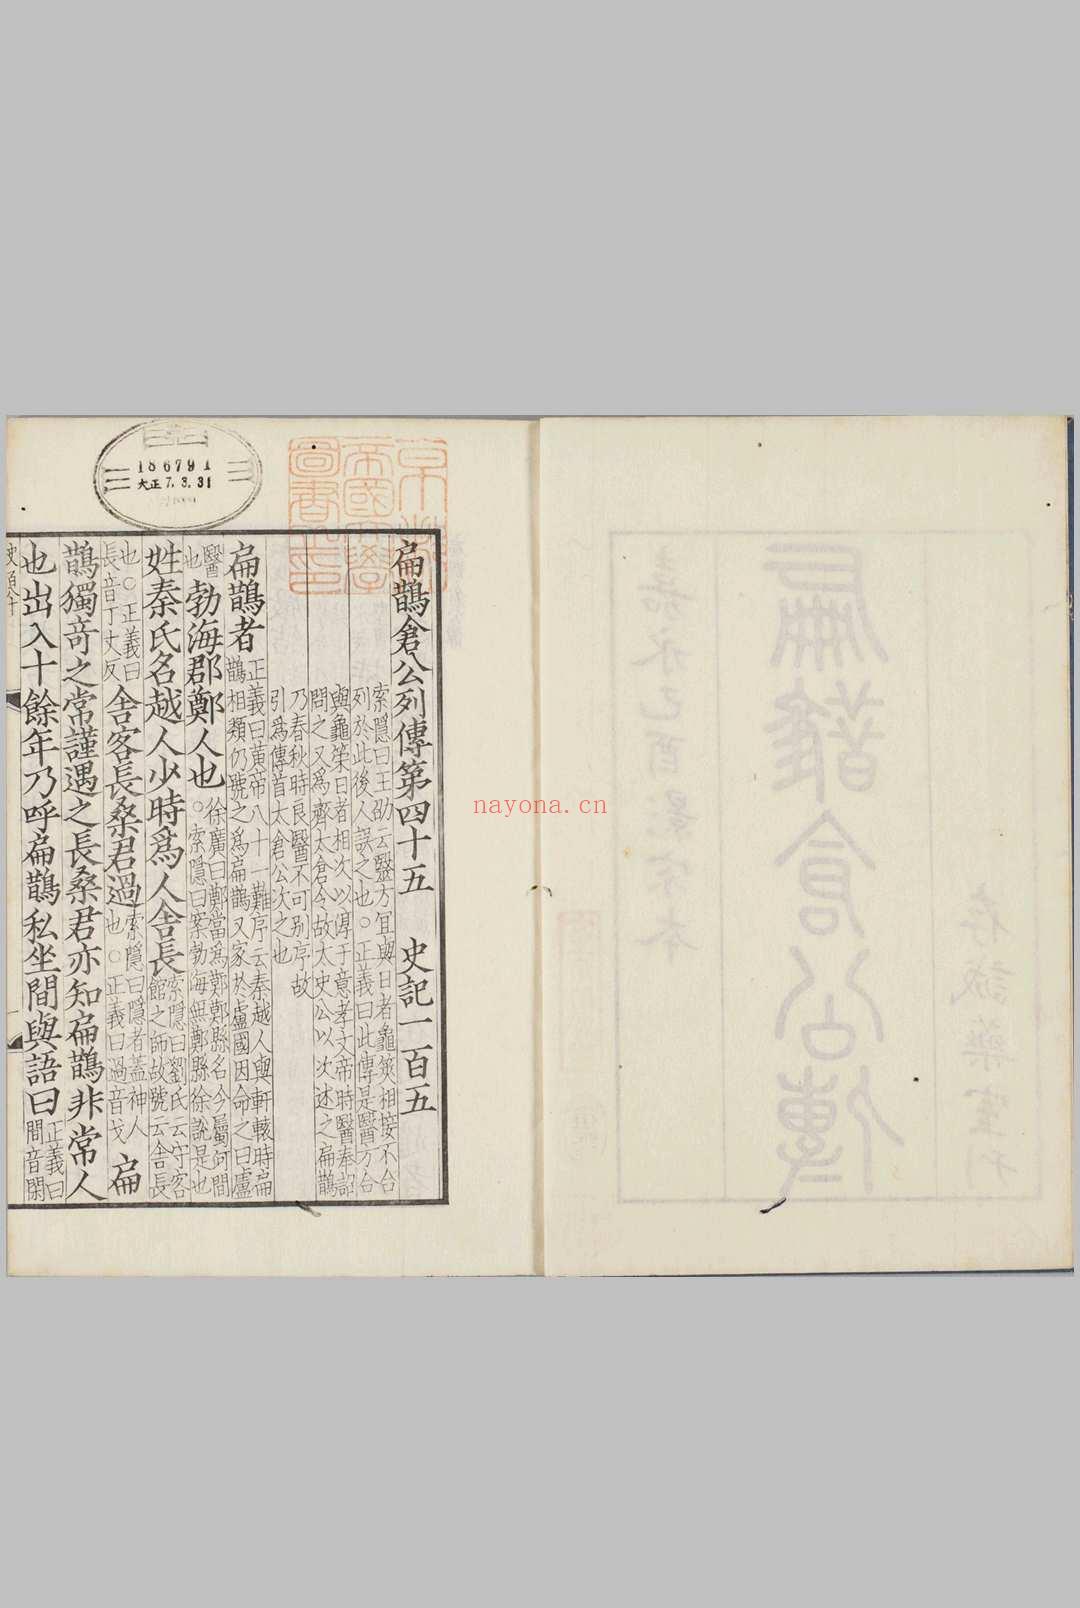 扁鵲倉公列傳第四十五　史記一百五
索隱曰王劭云醫方宜與日者龜筴相接不合
列於此後人誤之也○正義曰此傳是醫方合
與龜筞日者相次以淳于意孝文帝時醫奉詔
問之又為齊太倉令故太史公以次述之扁鵲
乃春秋時良醫不可別序故
引為傳首太倉公次之也
扁鵲者
正義曰黃帝八十一難序云秦越人與軒轅時扁
鵲相類仍號之為扁鵲又家於盧國因命之曰盧
醫
也
勃海郡鄭人也
徐廣曰鄭當為鄚鄚縣名今屬河間
○索隱曰案勃海無鄭縣徐說是也
姓秦氏名越人少時爲人舍長
索隱曰劉氏云守客
館之師故號云舍長
也○正義曰
長音丁丈反
舍客長桑君過
索隱曰隱者蓋神人
也○正義曰過音戈
扁
鵲獨奇之常謹遇之長桑君亦知扁鵲非常人
也出入十餘年乃呼扁鵲私坐間與語曰
正義曰
間音閑
186791
大正7.3.31
京都帝國大學圖書之印
扁鵲倉公傳
嘉永己酉影宋本
存誠藥室刊
nayona.cn